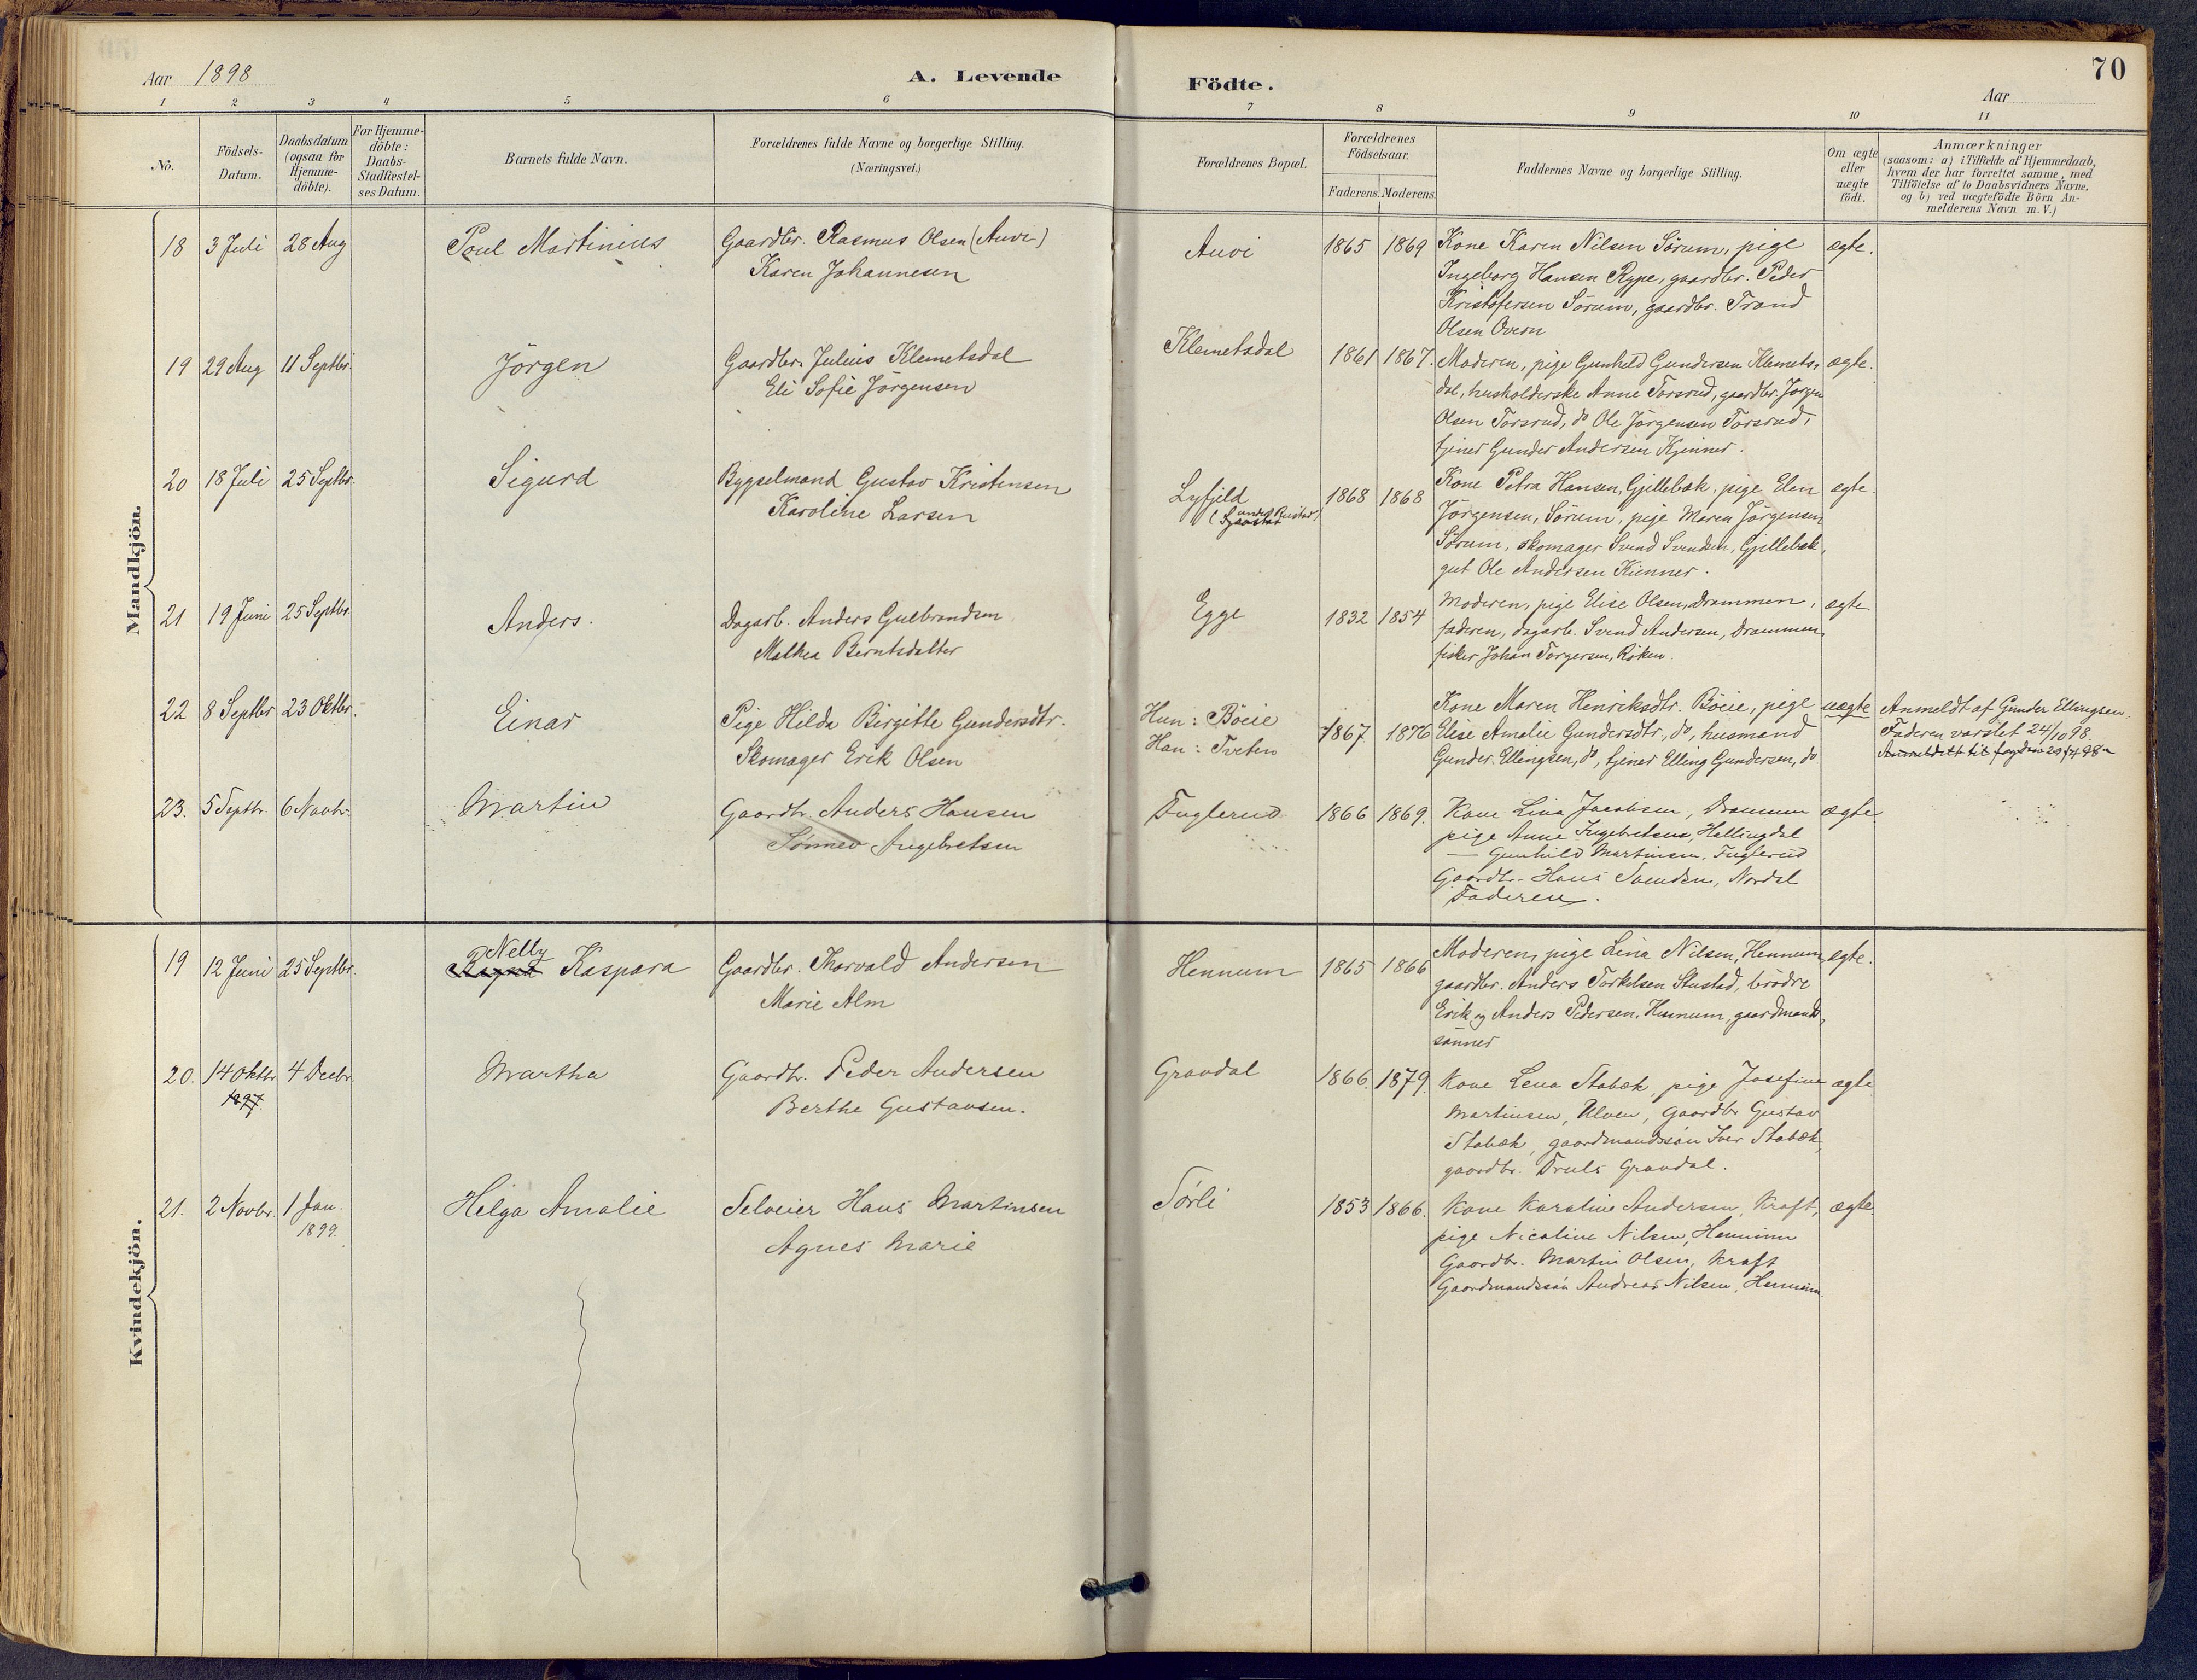 Aar 1898
A. Levende
Födte.
70
Aar
1 2 3 4 5 6 7 8 9 10 11
No.
Födsels-
Datum.
Daabsdatum
(ogsaa for
Hjemme-
döbte).
For Hjemme-
döbte:
Daabs-
Stadfæstel-
ses Datum.
Barnets fulde Navn.
Forældrenes fulde Navne og borgerlige Stilling.
(Næringsvei.)
Forældrenes Bopæl.
Forældrenes
Födselsaar.
Faderens. Moderens.
Faddernes Navne og borgerlige Stilling.
Om ægte
eller
uægte
födt.
Anmærkninger
(saasom: a) i Tilfælde af Hjemmedaab,
hvem der har forrettet samme, med
Tilföielse af to Daabsvidners Navne.
og b) ved uægtefödte Börn An-
melderens Navn m.V.)
Mandkjön.
18 3 Juli 28 Aug Poul Martinius Gaardbr. Rasmus Olsen (Auvi)
Karen Johannesen
Auvi 1865 1869 Kone Karen Nilsen Sørum, pige ægte.
Ingeborg Hansen Rype, gaardbr. Peder
Kristofersen Sörum, gaardbr. Trond
Olsen Overn
19 29 Aug 11 Septbr. Jörgen Gaardbr. Julius Klemetsdal
Eli Sofie Jörgensen
Klemetsdal 1861 1867. Moderen, pige Gunhild Gundersen Klemets- ægte.
dal, husholderske Anne Torsrud, gaardbr. Jörgen
Olsen Torsrud, do Ole Jörgensen Torsrud,
tjener Gunder Andersen Kjinner.
20 18 Juli 25 Septbr. Sigurd Bygselmand Gustav Kristensen
Karoline Larsen
Lyfjeld
(under Rustad)
1868 1868 Kone Petra Hansen, Gjellebæk, pige Elen ægte.
Jörgensen, Sörum, pige Maren Jörgensen
Sörum, skomager Svend Svendsen, Gjellebæk,
gut Ole Andersen Kienner.
21 19 Juni 25 Septbr. Anders. Dagarb. Anders Gulbrandsen
Mathea Berntsdatter
Egge 1832 1854 Moderen, pige Elise Olsen, Drammen, ægte
faderen, dagarb. Svend Andersen, Drammen,
fisker Johan Torgersen, Röken.
22 8 Septbr 23 Oktbr. Einar Pige Hilda Birgitte Gundersdtr.
Skomager Erik Olsen
Hun: Böeie
Han: Tveten
1867. 1876 Kone Maren Henriksdtr. Böeie, pige uægte
Elise Amalie Gundersdtr., do, husmand
Gunder Ellingsen, do, tjener Elling Gundersen, do
Anmeldt af Gunder Ellingsen.
Faderen varslet 24/10 98.
23. 5 Septbr. 6 Novbr. Martin Gaardbr. Anders Hansen
Sönnev Ingebretsen
Fuglerud 1866 1869. Kone Lina Jacobsen, Drammen ægte
pige Anne Ingebretsen, Hallingdal
— Gunhild Martinsen, Fuglerud
Gaardbr. Hans Svendsen, Nordal
Faderen.
Kvindekjön.
19 12 Juni 25 Septbr. Nelly
Ragna Kaspara Gaardbr. Thorvald Andersen
Marie Alm
Hennum 1865 1866 Moderen, pige Lina Nilsen, Hennum, ægte.
gaardbr. Anders Torkelsen Stustad, brödre
Erik og Anders Pedersen, Hennum, gaardmands-
sönner
20. 14 Oktbr 4 Decbr. Martha Gaardbr. Peder Andersen
1897.
Berthe Gustavsen.
Gravdal 1866. 1879. Kone Lena Stabæk, pige Josefine ægte
Martinsen, Ulven, Gaardbr Gustav
Stabæk, gaardmandssön Iver Stabæk,
gaardbr. Truls Gravdal.
21. 2 Novbr. 1 Jan.
1899.
Helga Amalie Selveier Hans Martinsen
Agnes Marie
Sörli 1853 1866. Kone Karoline Andersen, Kraft, ægte
pige Nicoline Nilsen, Hennum
Gaardbr. Martin Olsen, Kraft
Gaardmandssön Andreas Nilsen, Hennum